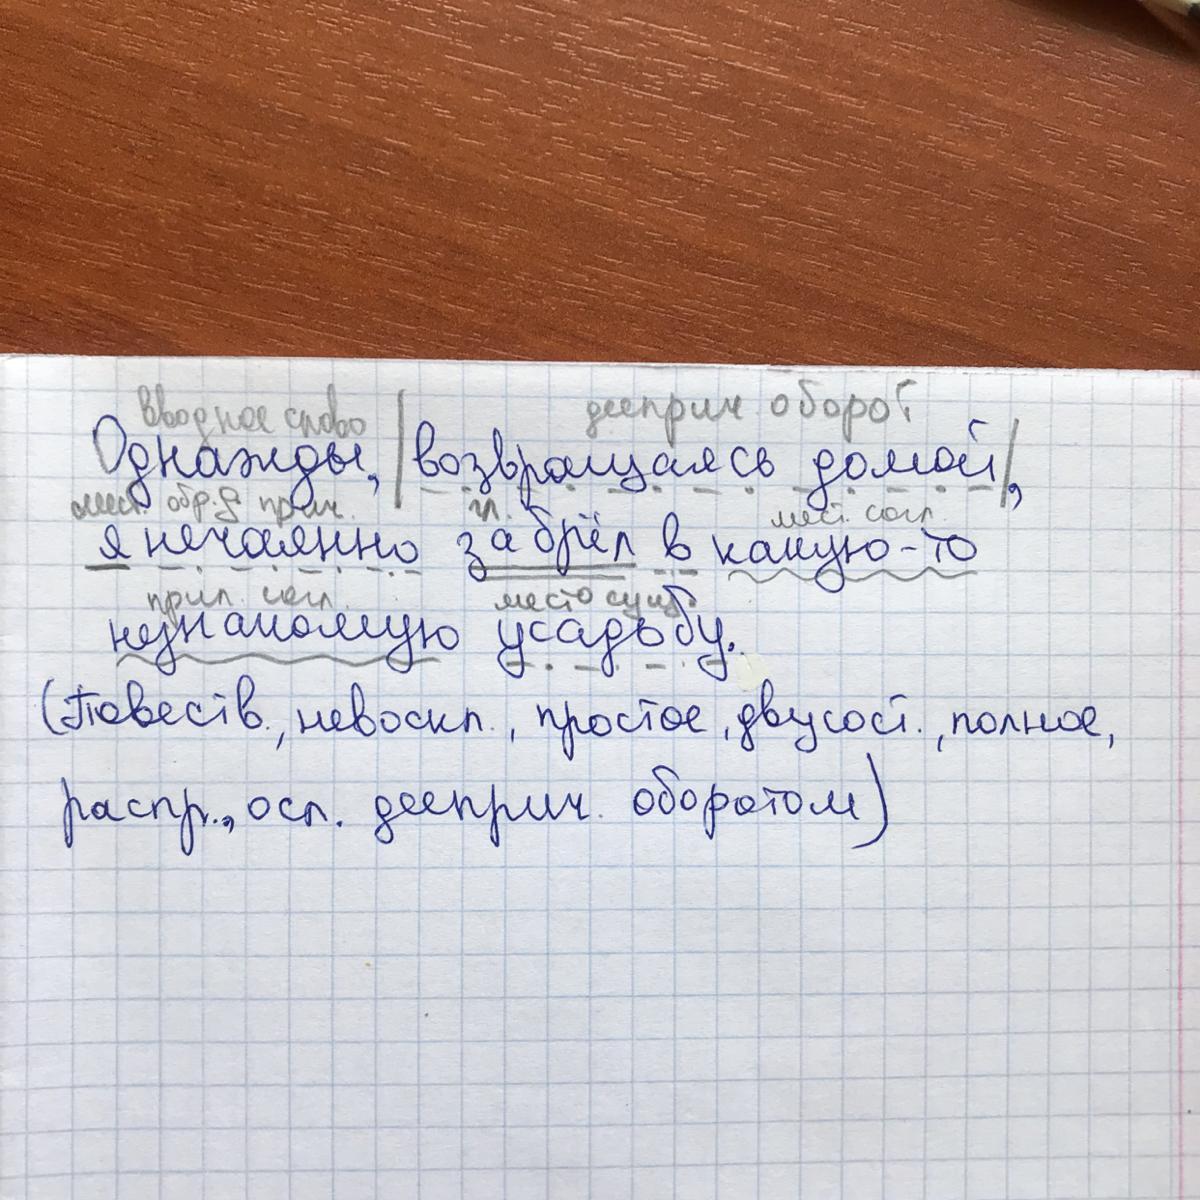 вводное слово дееприч. оборот
Однажды, возвращаясь домой,
мест. обр. д. прич. гл. мест. согл.
я нечаянно забрёл в какую-то
прил. согл. место сущ.
незнакомую усадьбу.
(Повеств., невоскл., простое, двусост., полное,
распр., осл. дееприч. оборотом)